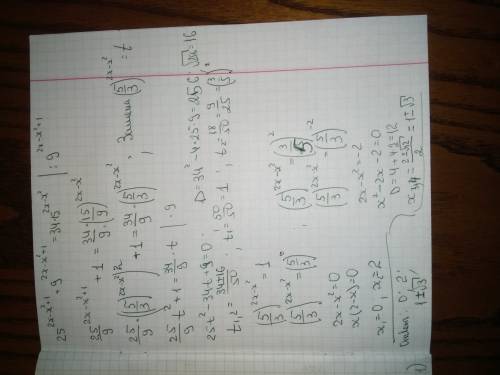 25^{2x-x²+1} + 9^{2x-x²+1} = 34·15^{2x-x²} | : 9^{2x-x²+1}
(25/9)^{2x-x²+1} + 1 = 34/9 · (15/9)^{2x-x²}
25/9 · ((5/3)^{2x-x²})² + 1 = 34/9 (5/3)^{2x-x²} ; Замена (5/3)^{2x-x²} = t
25/9 t² + 1 = 34/9 · t | · 9
25t² - 34t + 9 = 0. D = 34² - 4·25·9 = 256; √256 = 16
t₁,₂ = (34±16)/50 ; t₁ = 50/50 = 1 ; t₂ = 18/50 = 9/25 = (3/5)²
(5/3)^{2x-x²} = 1 (5/3)^{2x-x²} = (3/5)²
(5/3)^{2x-x²} = (5/3)⁰ (5/3)^{2x-x²} = (5/3)^{-2}
2x-x² = 0 2x-x² = -2
x(2-x) = 0 x² - 2x - 2 = 0
x₁ = 0, x₂ = 2 D = 4 + 4·2 = 12
x₃,₄ = = 1±√3
0; 2;
1±√3
1)